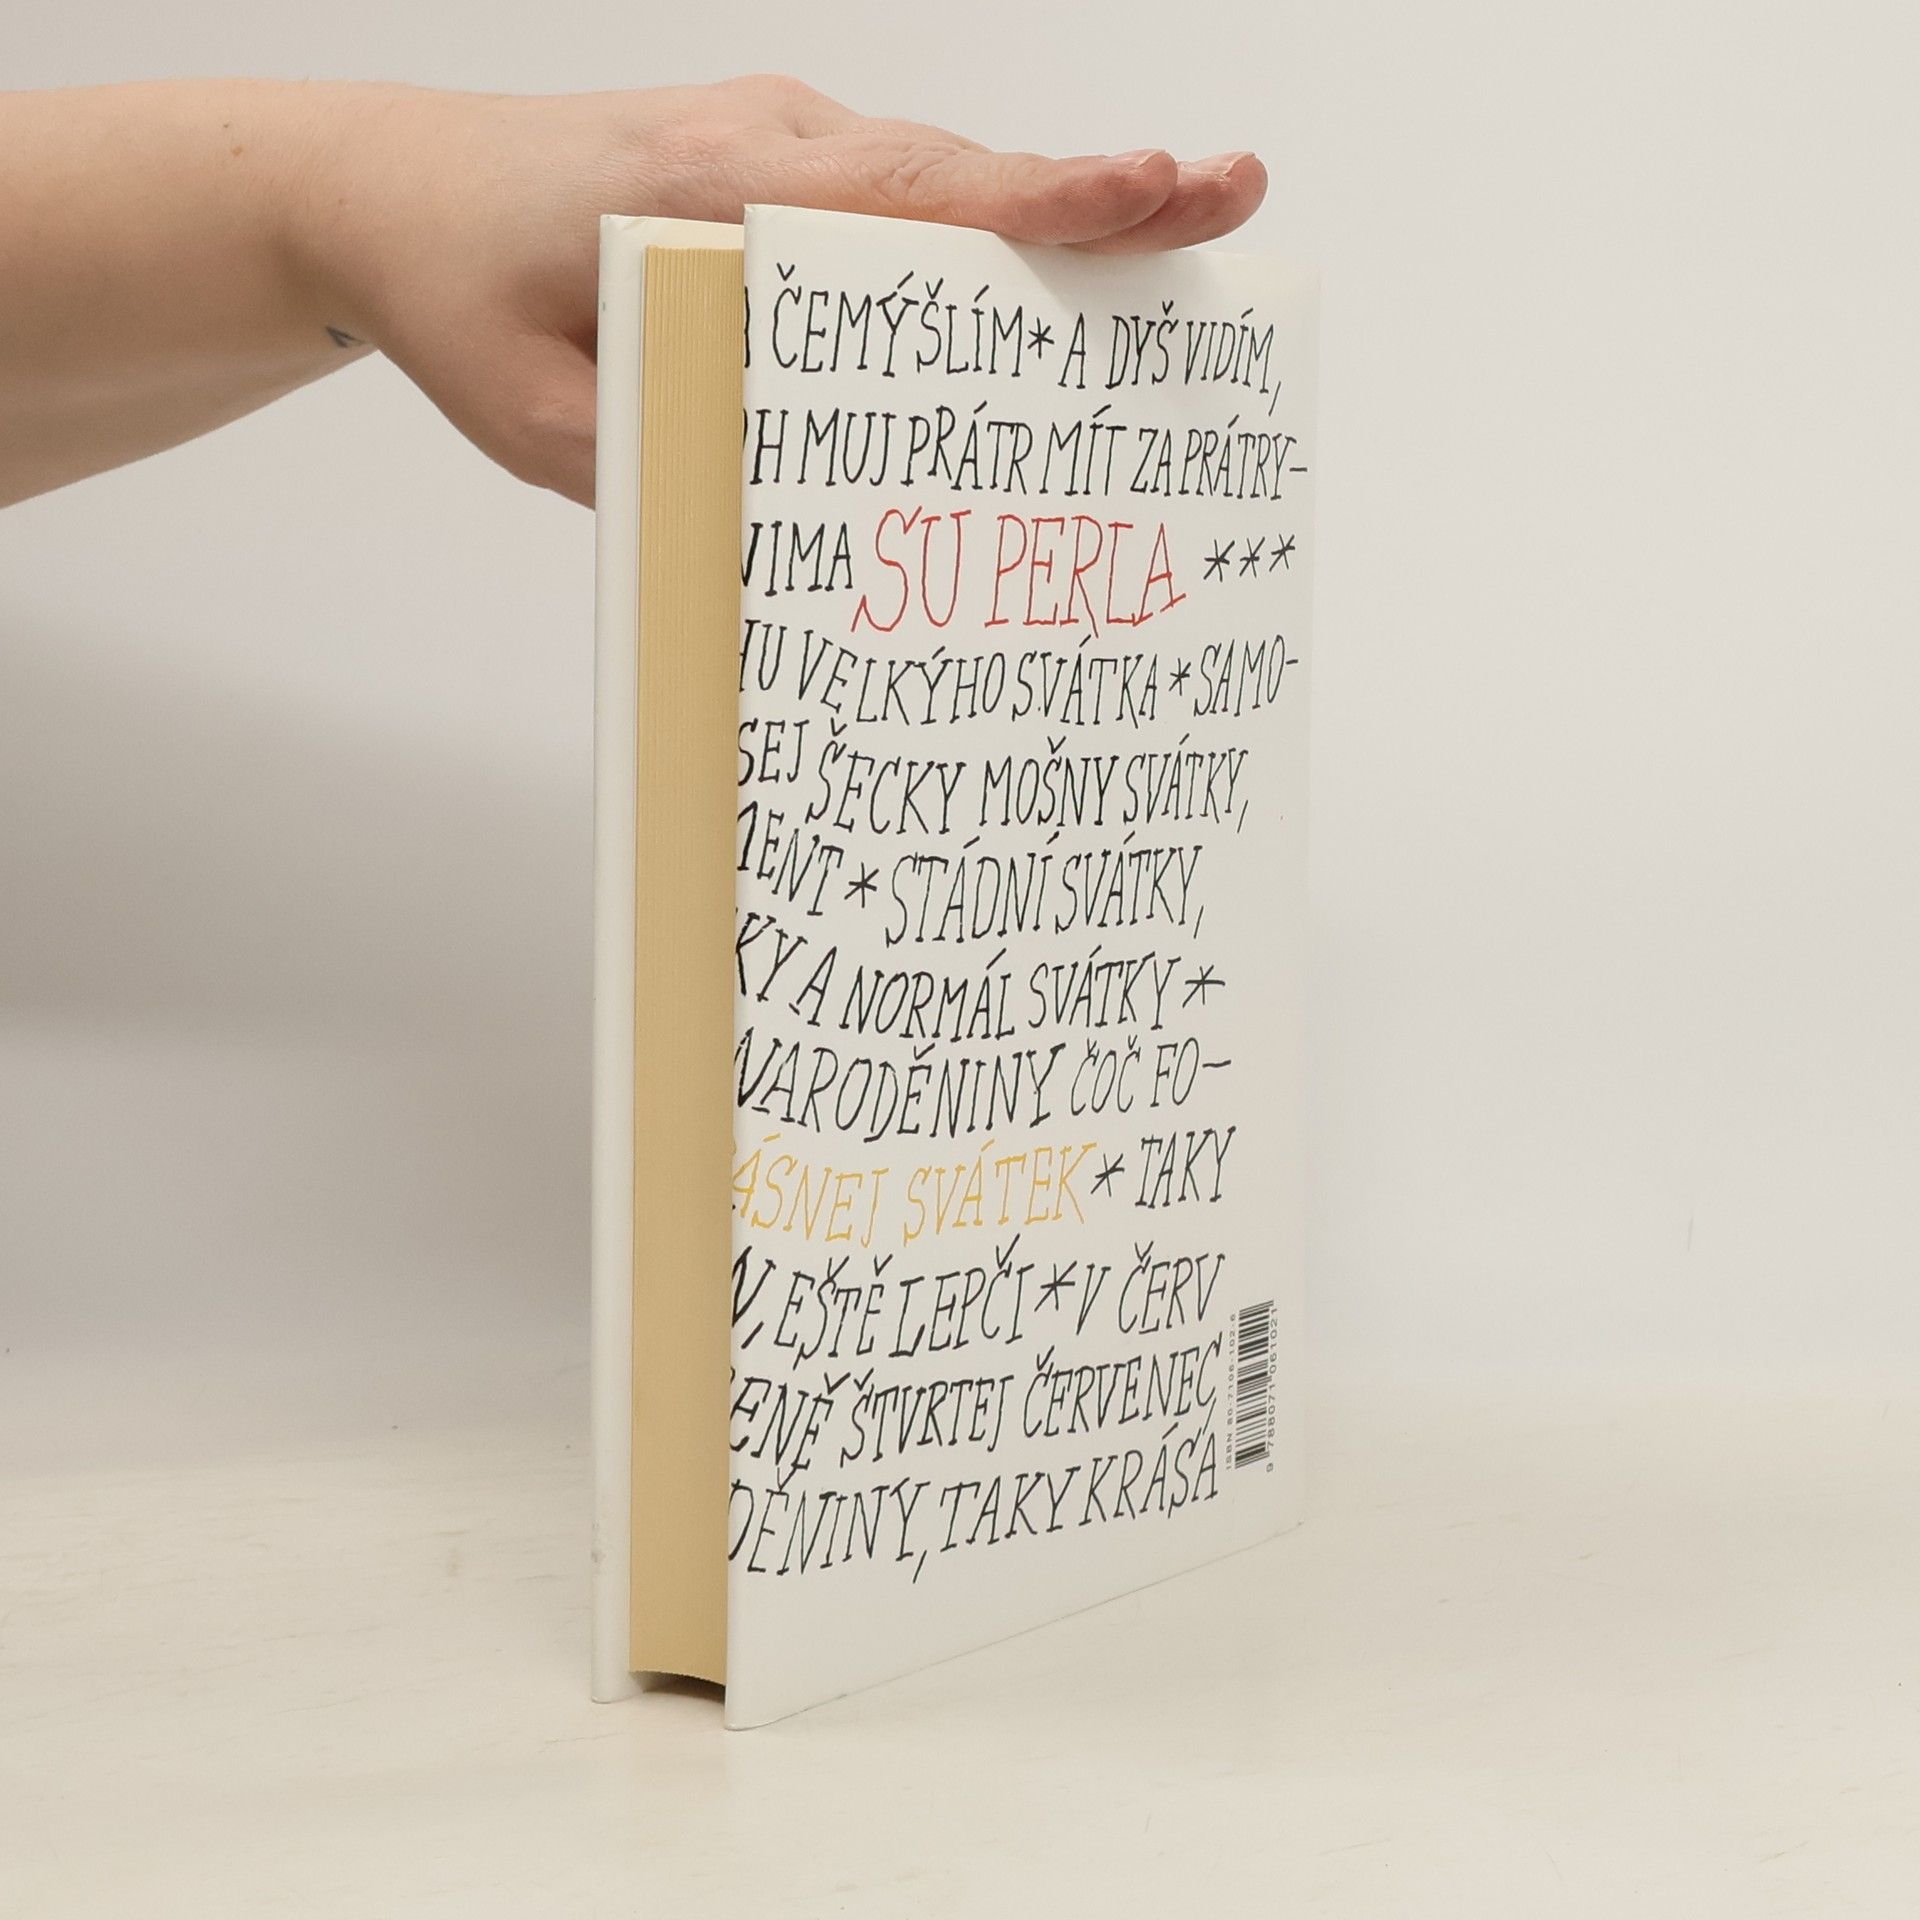 ČEMÝŠLÍM * A DYŠ VIDÍM,
H MUJ PRÁTR MÍT ZA PRÁTRY–
NIMA SU PERLA ***
HU VELKÝHO SVÁTKA * SAMO-
SEJ ŠECKY MOŠNY SVÁTKY,
MENT * STÁDNÍ SVÁTKY,
KY A NORMÁL SVÁTKY *
NARODĚNINY ČOČ FO–
ÁSNEJ SVÁTEK * TAKY
N, EŠTĚ LEPČI * V ČERV
ENĚ ŠTVRTEJ ČERVENEC
DĚNINY, TAKY KRÁSÁ
ISBN 80-7106-102-6
9 788071 061021